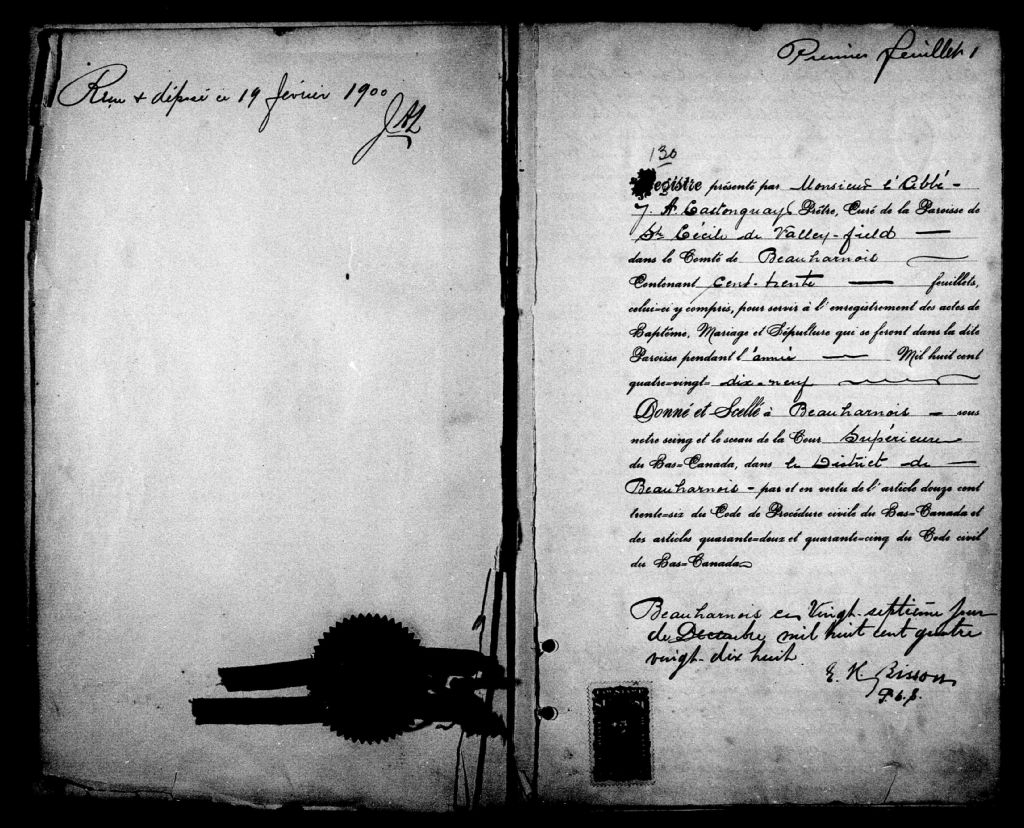 Reçu & déposé ce 19 février 1900
JAL
Premier feuillet 1
130
Registre présenté par Monsieur l'Abbé -
J. A. Castonguay Prêtre, Curé de la Paroisse de
Ste Cécile de Valley-field —
dans le Comté de Beauharnois
Contenant cent-trente — feuillets,
celui-ci y compris, pour servir à l'enregistrement des actes de
Baptême, Mariage et Sépulture qui se feront dans la dite
Paroisse pendant l'année — Mil huit cent
quatre=vingt= dix-neuf
Donné et Scellé à Beauharnois — sous
notre seing et le sceau de la Cour Supérieure
du Bas=Canada, dans le District de —
Beauharnois - par et en vertu de l'article douze cent
trente=six du Code de Procédure civile du Bas=Canada et
des articles quarante=deux et quarante=cinq du Code civil
du Bas=Canada
Beauharnois ce Vingt-septième jour
de Décembre mil huit cent quatre
vingt-dix huit.
E. H. Bisson
P.C.S.